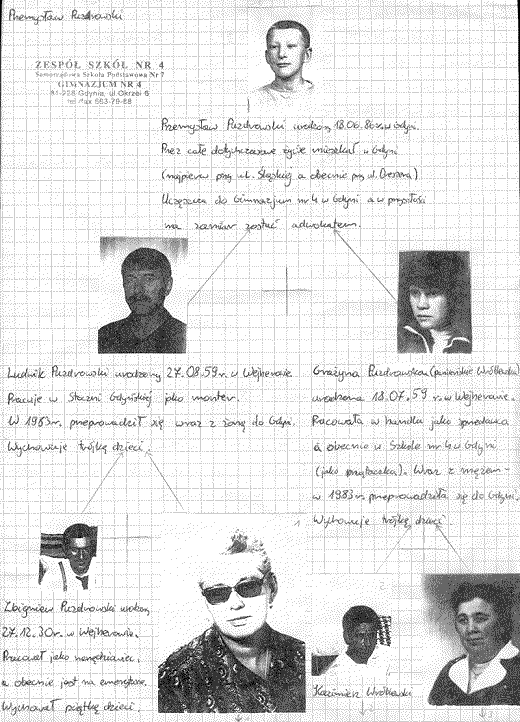 Przemysław Puzdrowski
ZESPÓŁ SZKÓŁ NR 4
Samorządowa Szkoła Podstawowa Nr 7
GIMNAZJUM NR 4
81-258 Gdynia, ul Okrzei 6
tel /fax 663-79-88
Przemysław Puzdrowski urodzony 18.06.86r. w Gdyni.
Przez całe dotychczasowe życie mieszkał w Gdyni
(najpierw przy ul. Śląskiej a obecnie przy ul.
Uczęszcza do Gimnazjum nr 4 w Gdyni a w przyszłości
ma zamiar zostać adwokatem.
Ludwik Puzdrowski urodzony 27.08.59r. w Wejherowie.
Pracuje w Stoczni Gdyńskiej jako monter.
W 1983r. przeprowadził się wraz z żoną do Gdyni.
Wychowuje trójkę dzieci.
Grażyna Puzdrowska (panieńskie Wróblewska)
urodzona 18.07.59 r. w Wejherowie.
Pracowała w handlu jako sprzedawca
a obecnie w Szkole nr 4 w Gdyni
(jako sprzątaczka). Wraz z mężem
w 1983r. przeprowadziła się do Gdyni.
Wychowuje trójkę dzieci.
Zbigniew Puzdrowski urodzony
27.12.30r. w Wejherowie.
Pracował jako narzędziowiec,
a obecnie jest na emeryturze.
Wychował piątkę dzieci.
Kazimierz Wróblewski